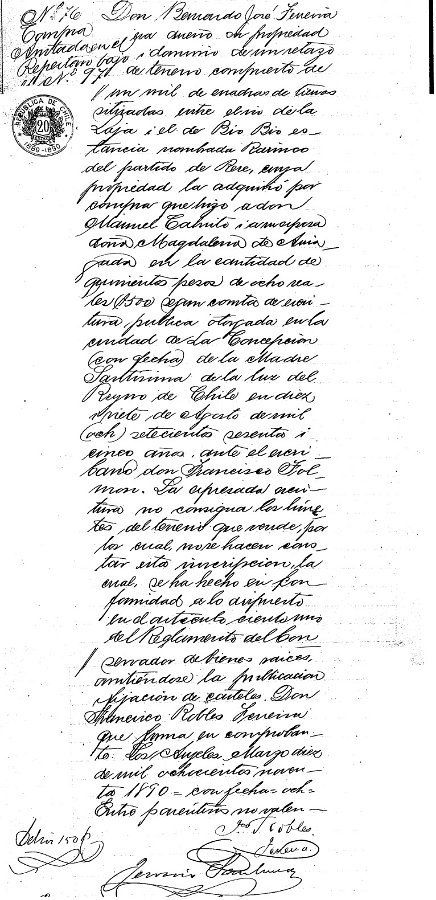 Nº 76 Don Bernardo José Fereira
Compra
Anotada en el gna dueño en propiedad
Repertorio bajo i dominio de un retazo
el Nº 971 de terreno compuesto de
un mil de cuadras de tierras
sitizadas entre el rio de la
Laja i el de Bio Bio es-
tancia nombrada Rarinco
del partido de Rere, cuya
propiedad la adquirió por
compra que hizo a don
Manuel Cabrito i a su esposa
doña Magdalena de Arria
gada en la cantidad de
quinientos pesos de ocho rea-
les (500 segun consta de escri-
tura publica otorgada en la
ciudad de La Concepcion
(con fecha) de la Madre
Santisima de la luz del
Reyno de Chile en diez
i siete de Agosto de mil
(och) setecientos sesenta i
cinco años, ante el escri-
bano don Francisco Fol-
mon. La espresada escri-
tura no consigna los linde
ros del terreno que vende, por
lo cual, no se hacen cons-
tar esta inscripcion, la
cual, se ha hecho en con
formidad a lo dispuesto
en el articulo ciento uno
del Reglamento del Con
servador de bienes raices,
omitiéndose la publicacion
i fijacion de carteles. Don
Francisco Robles Fereira
que firma en comproban-
te. Los Anjeles, Marzo diez
de mil ochocientos noven-
ta 1890 = con fecha = och =
Entre parentesis no valen -
Fco J. Robles
Fereira
REPUBLICA DE CHILE
20
1889-1890